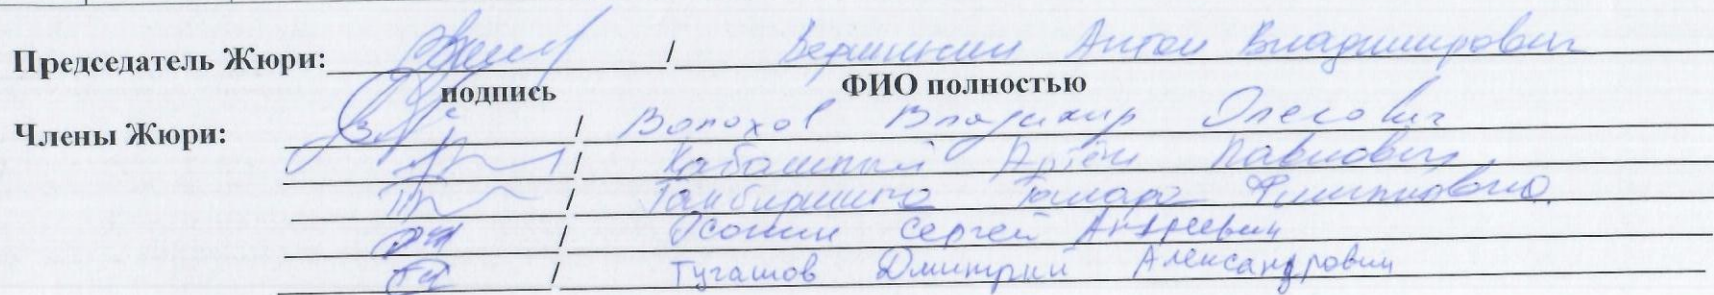 Председатель Жюри: / Антон Владимирович
подпись ФИО полностью
Члены Жюри: / Волохов Владимир Олегович
/ Артём Павлович
/ Тамара Филипповна
/ Осокин Сергей Андреевич
/ Тугашов Дмитрий Александрович